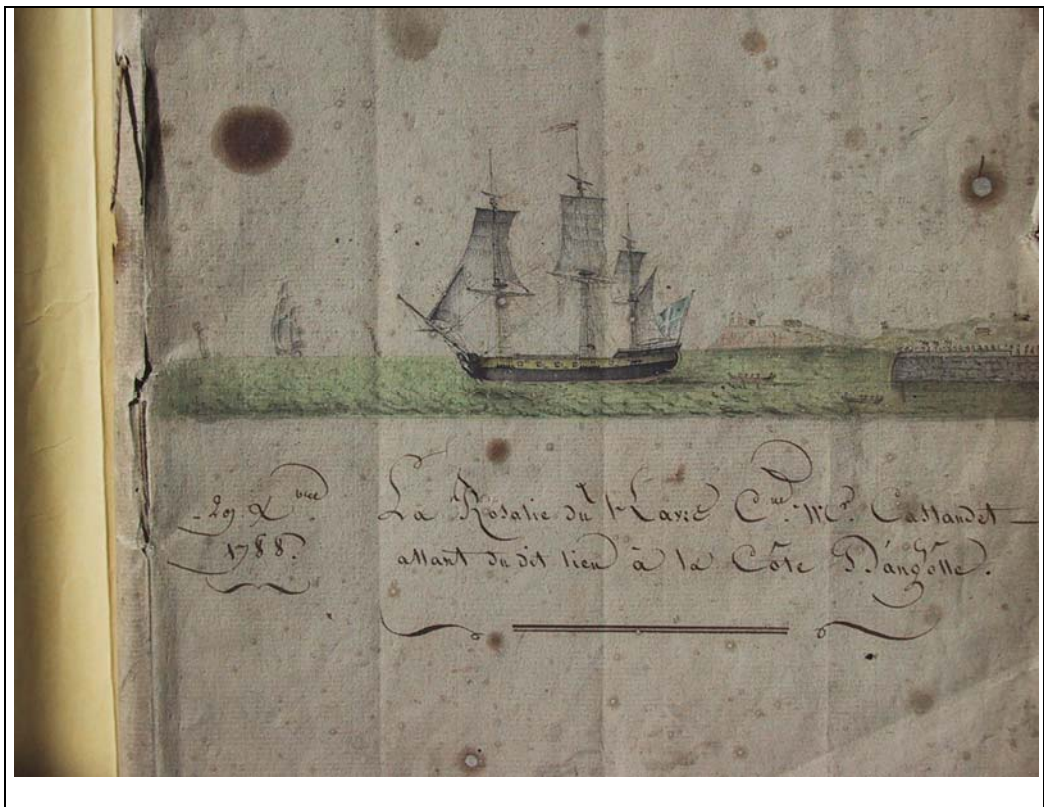 29 X bre
1788.
La Rosalie du h avre C ne. Mr. Castandet
allant du dit lieu à la Côte D'angolle.